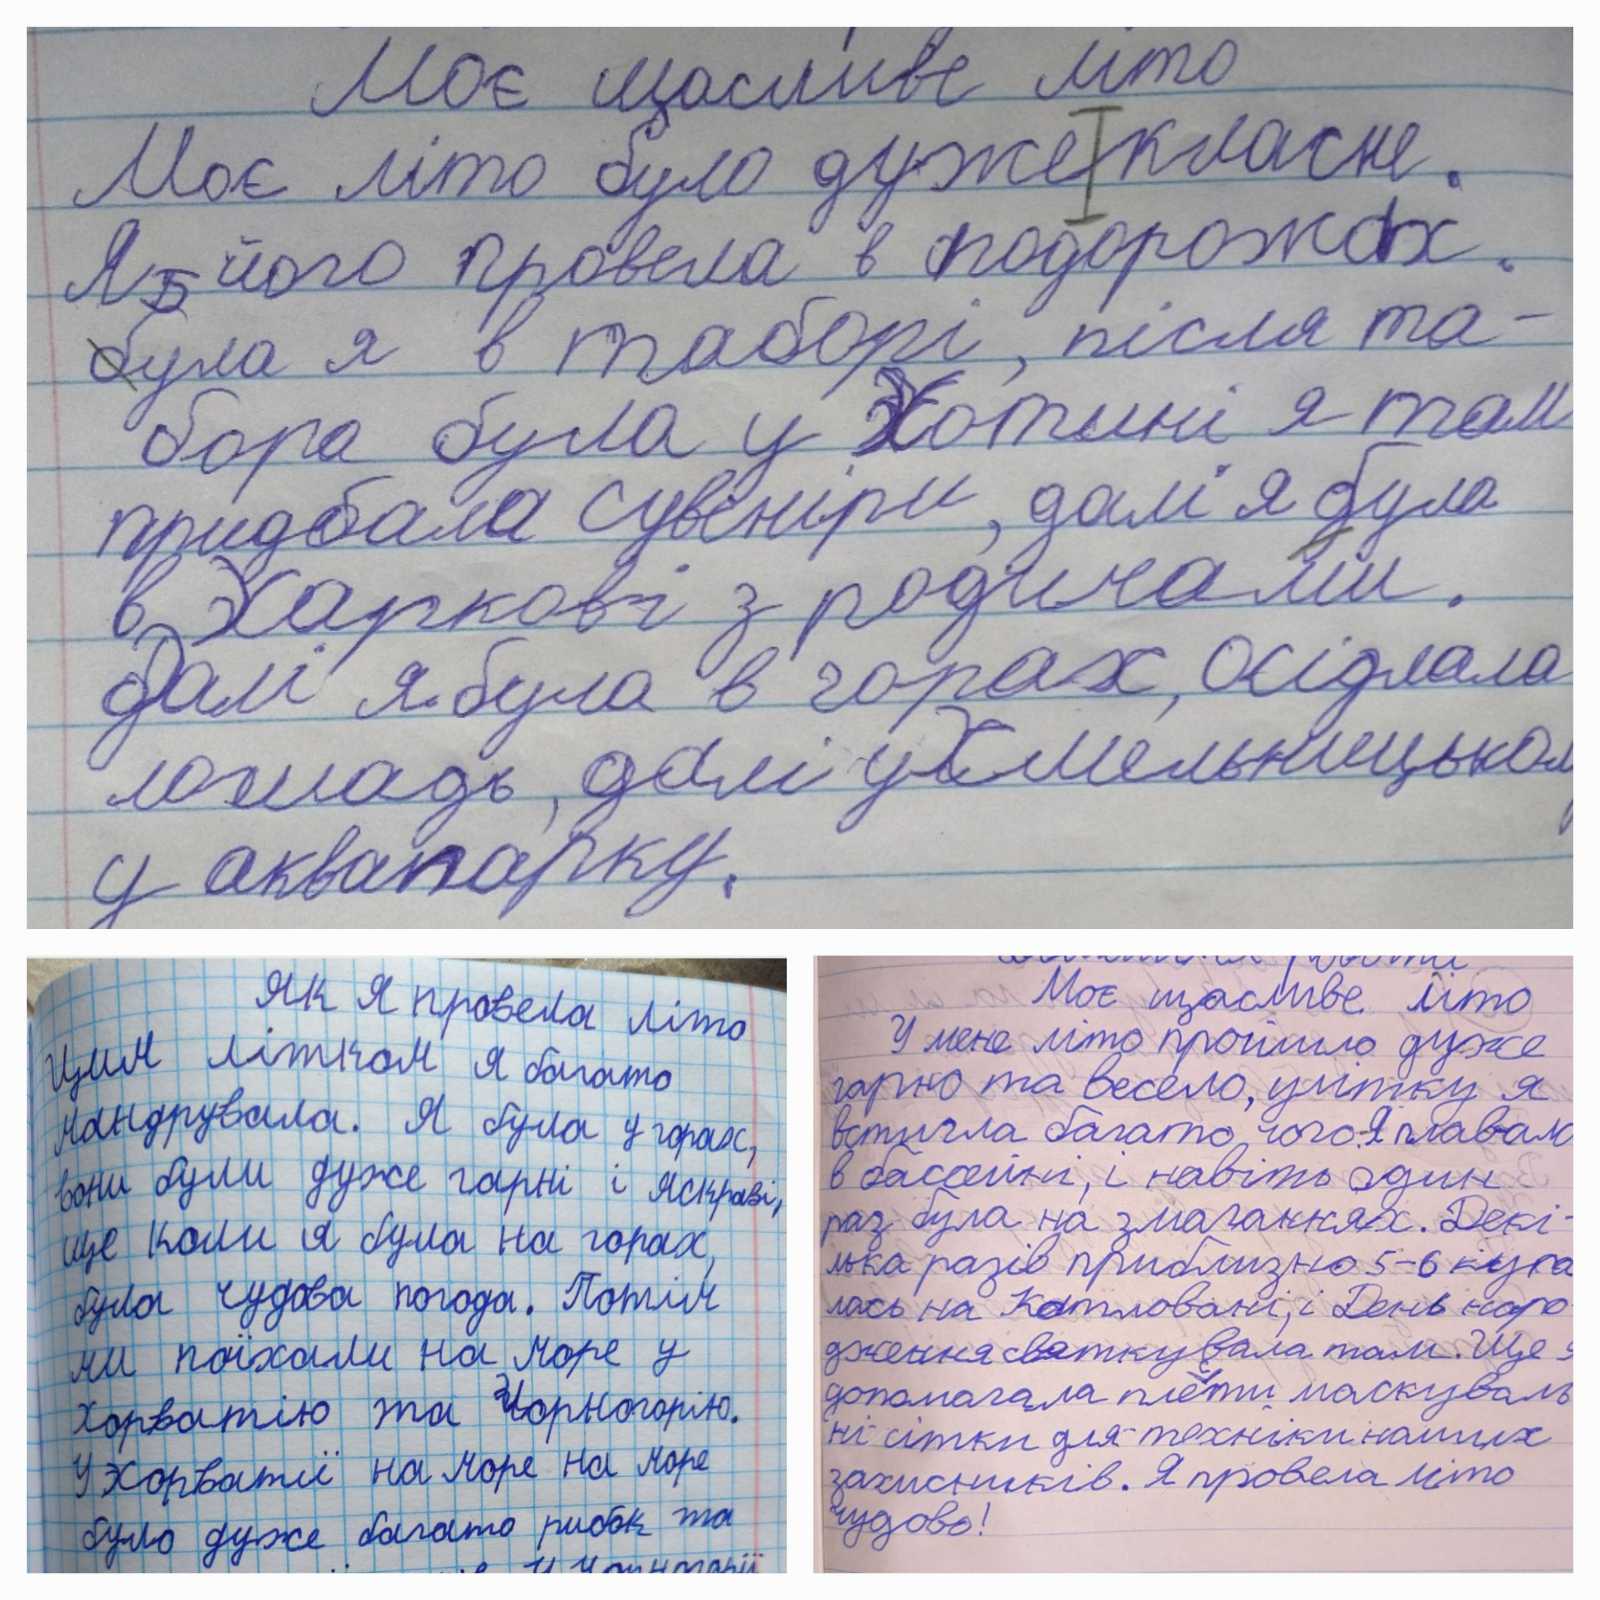 Моє щасливе літо
Моє літо було дуже класне.
Я його провела в подорожах.
Була я в таборі, після та-
бора була у Хотині я там
придбала сувеніри, далі я була
в Харкові з родичами.
Далі я була в горах, осідлала
лошадь, далі у Хмельницьком
у аквапарку.
Як я провела літо
Цим літком я багато
мандрувала. Я була у горах,
вони були дуже гарні і яскраві,
ще коли я була на горах,
була чудова погода. Потім
ми поїхали на море у
Хорватію та Чорногорію.
У Хорватії на море на море
було дуже багато рибок та
У Чорногорії
роботи
Моє щасливе літо
У мене літо пройшло дуже
гарно та весело, улітку я
встигла багато чого. Я плавала
в бассейні, і навіть один
раз була на змаганнях. Декі-
лька разів приблизно 5-6 купа
лась на Котловані, і День наро
дження святкувала там. Ще я
допомагала плести маскуваль
ні сітки для техніки наших
захисників. Я провела літо
чудово!